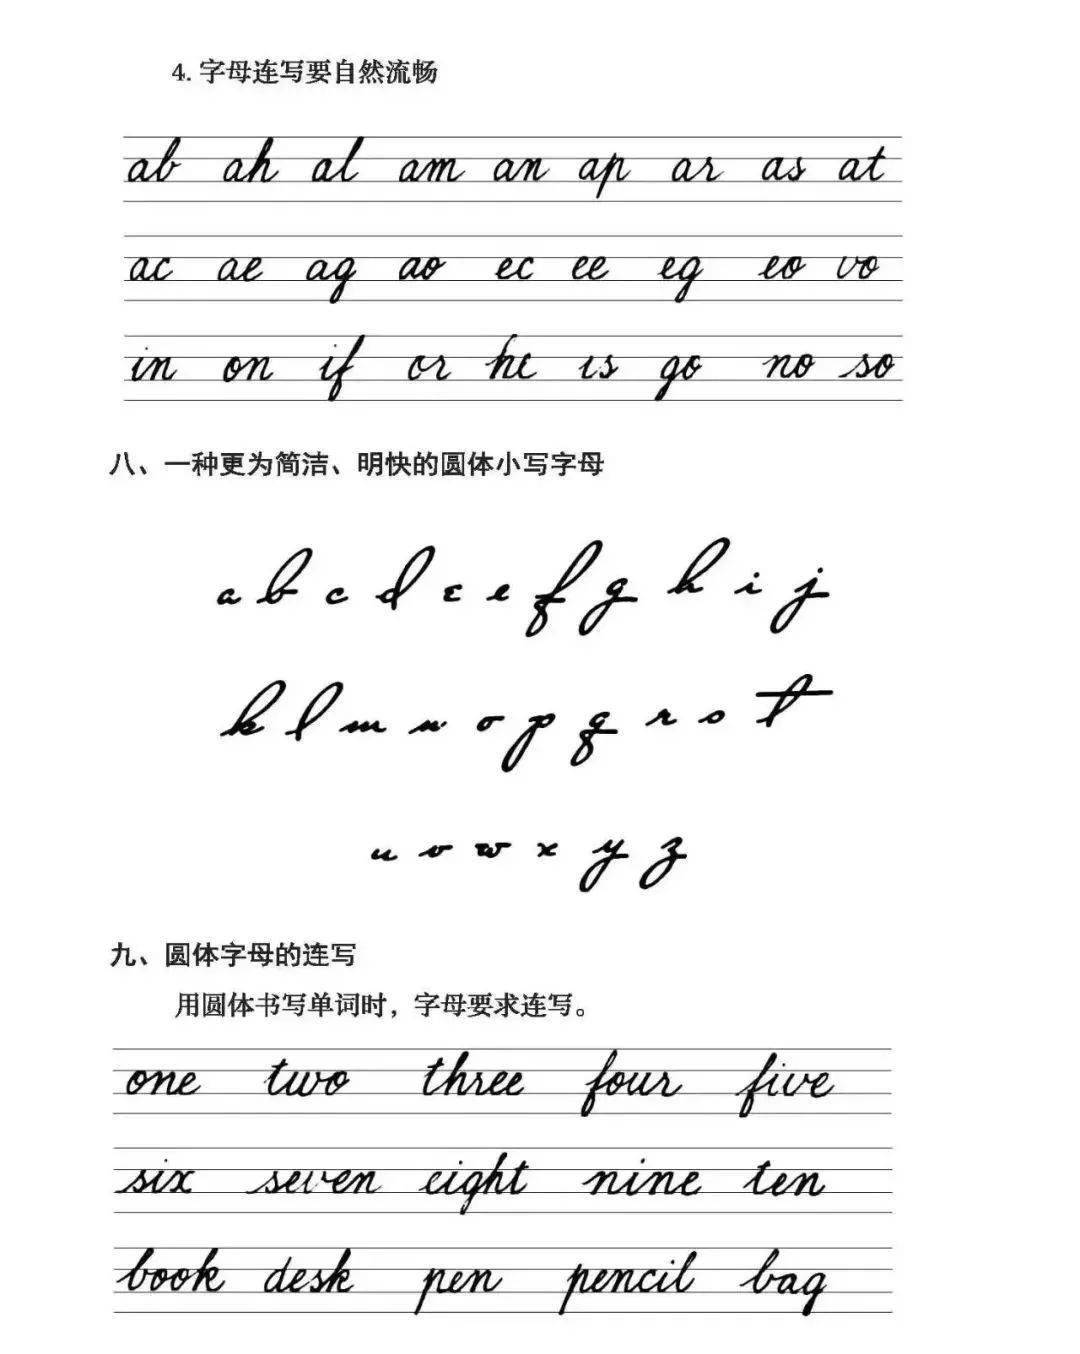 4. 字母连写要自然流畅
ab ah al am an ap ar as at
ac ae ag ao ec ee eg eo vo
in on if or he is go no so
八、一种更为简洁、明快的圆体小写字母
a b c d ε e f g h i j
k l m n o p q r s t
u v w x y z
九、圆体字母的连写
用圆体书写单词时，字母要求连写。
one two three four five
six seven eight nine ten
book desk pen pencil bag